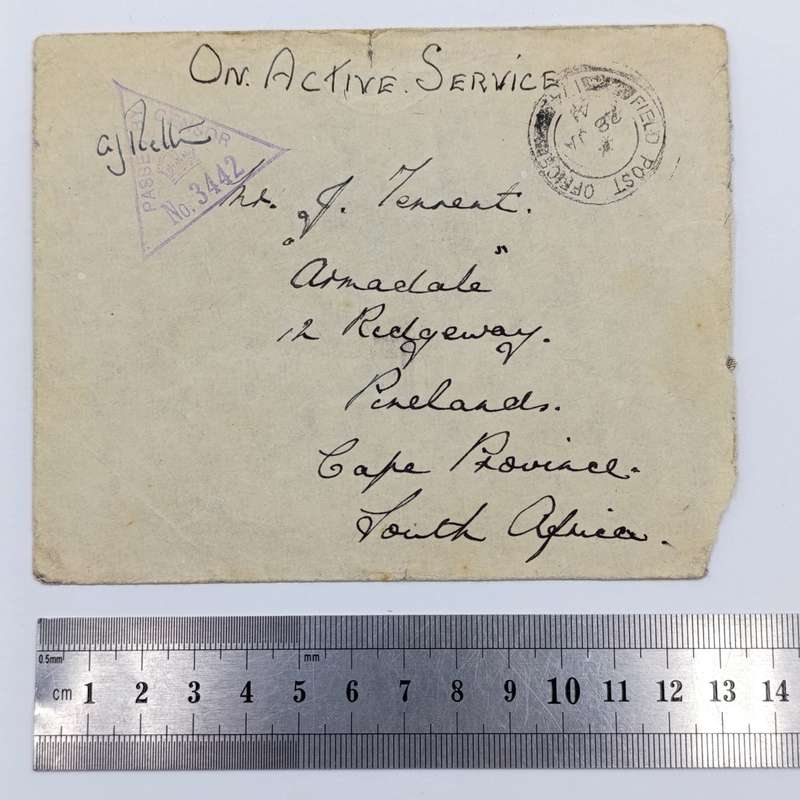 On. Active. Service
FIELD POST OFFICE
28
JA
PASSED
CENSOR
No. 3442
Mr. J. Tennent.
"Armadale"
12 Ridgeway.
Pinelands.
Cape Province.
South Africa.
0.5mm
mm
cm 1 2 3 4 5 6 7 8 9 10 11 12 13 14